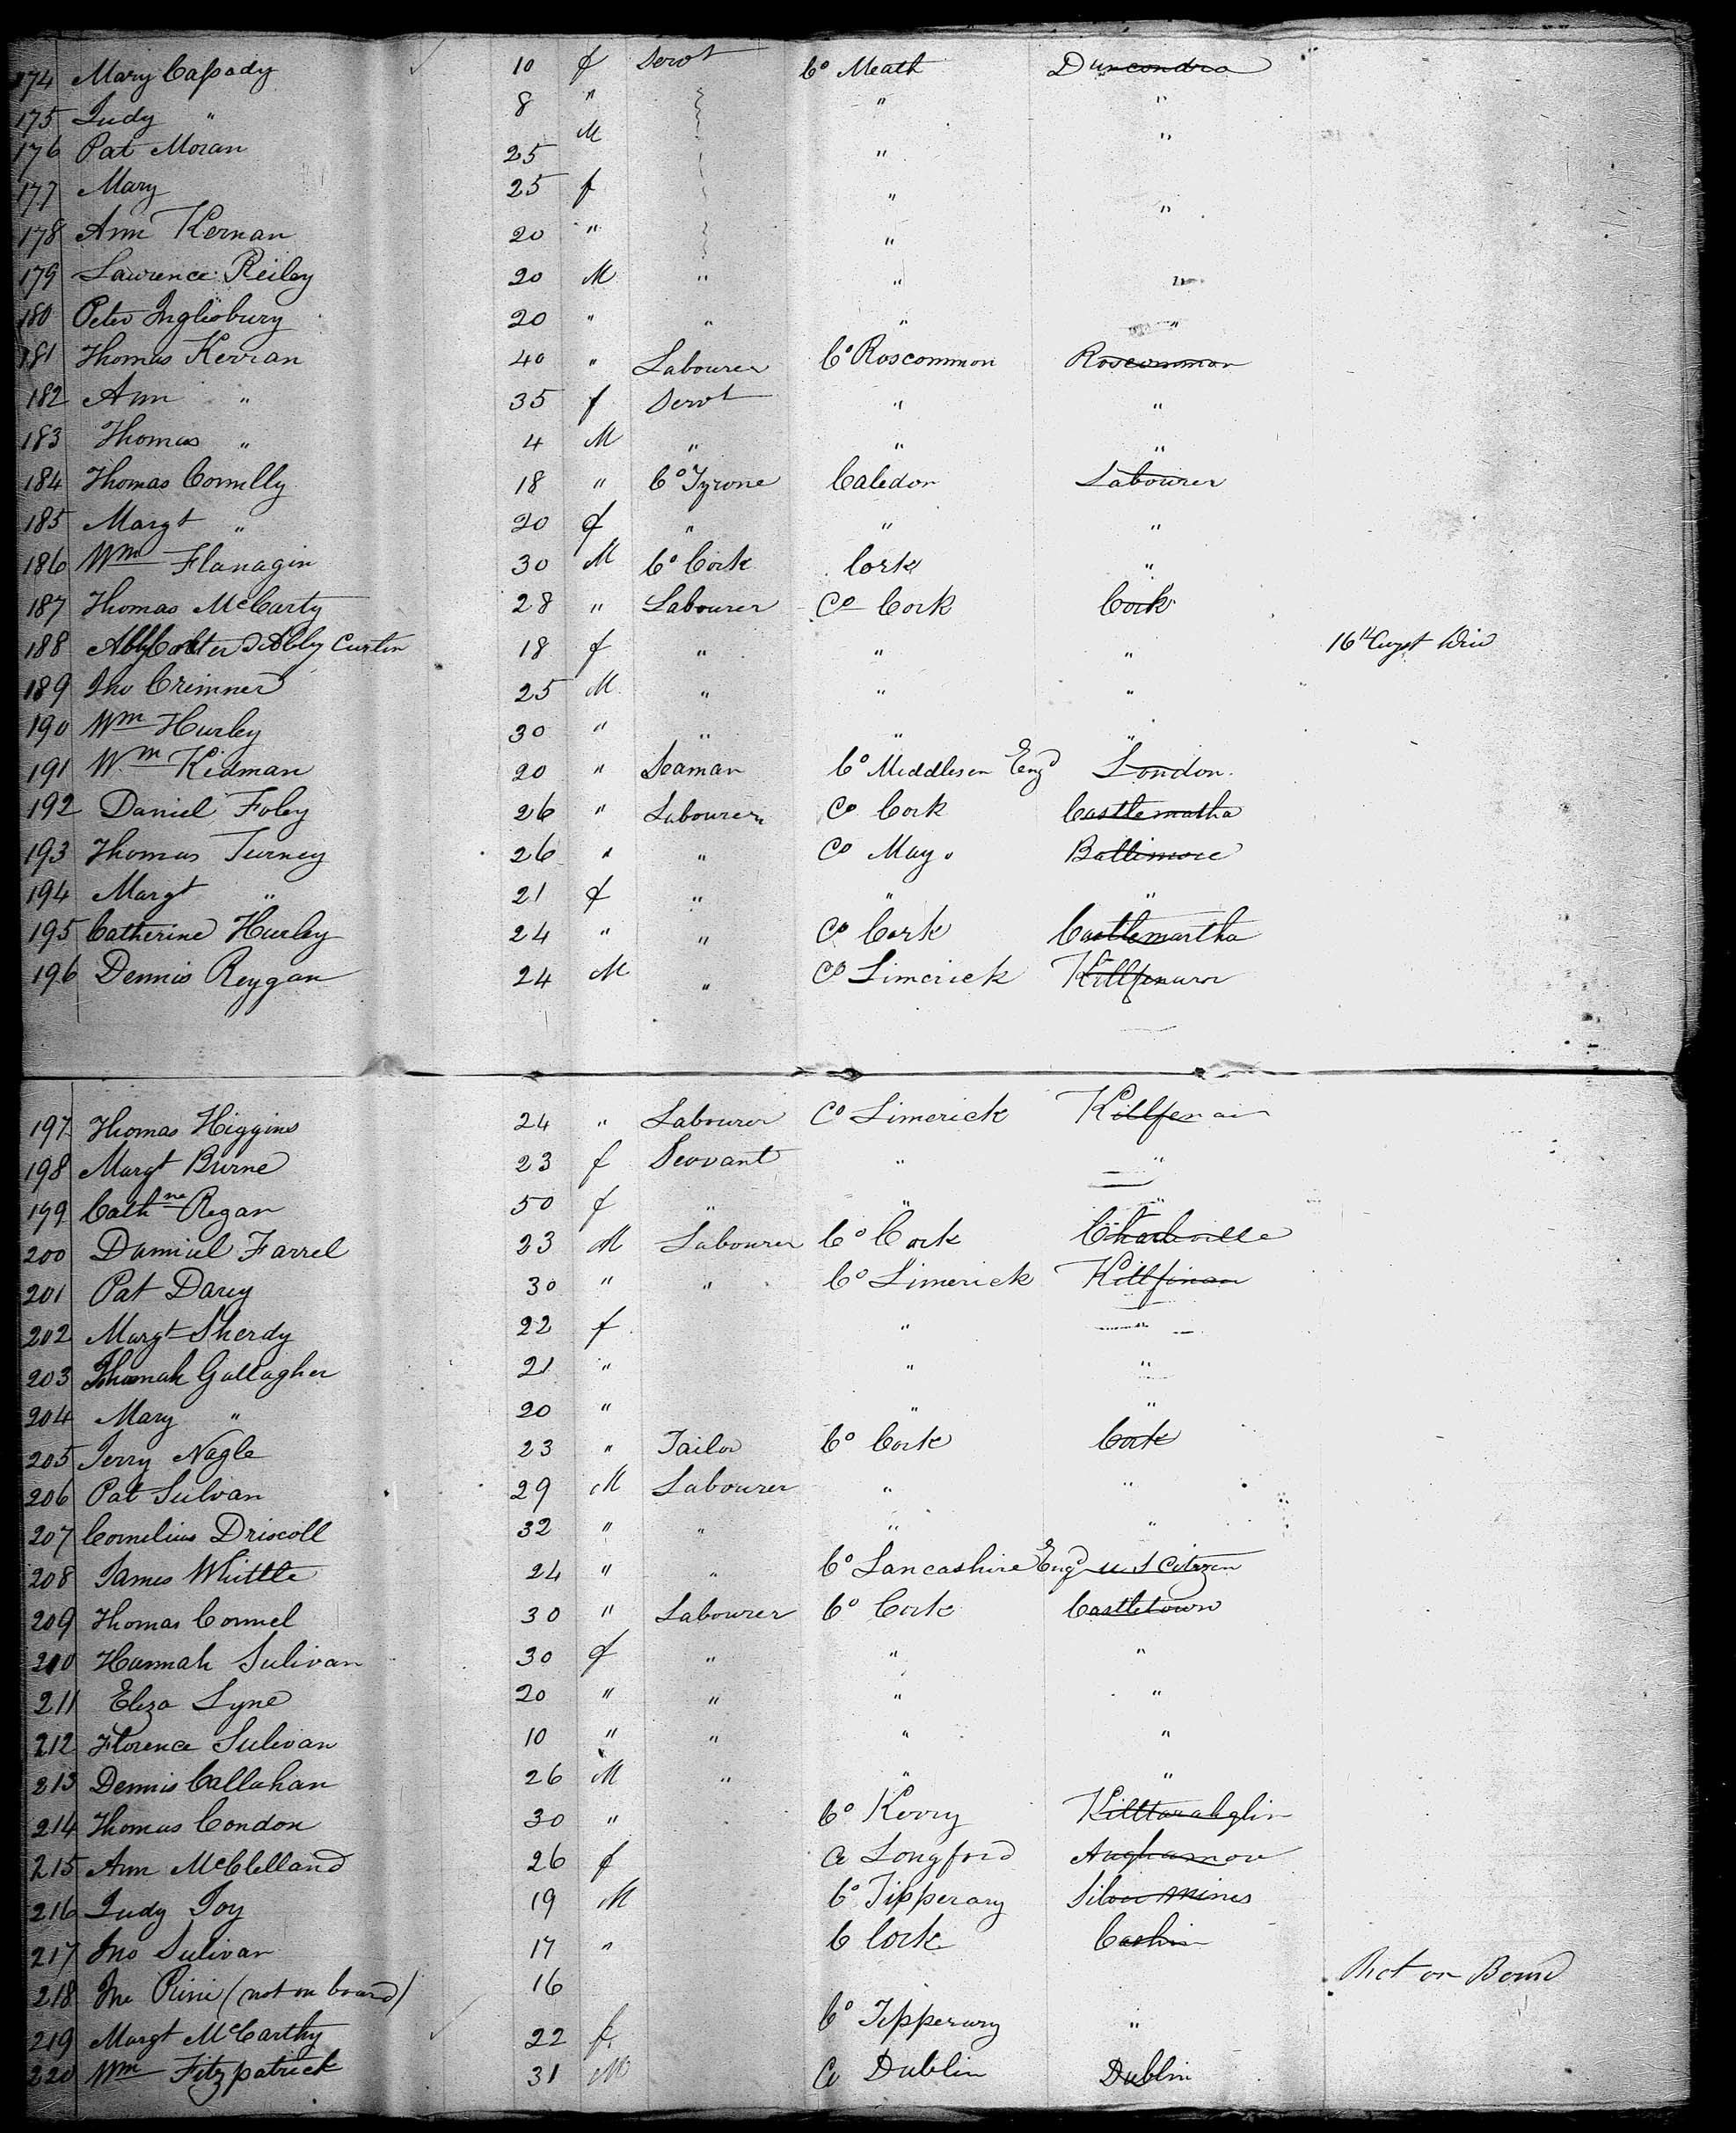 174 Mary Cassady 10 f Servt Co Meath Duncondra
175 Judy " 8 " " "
176 Pat Moran 25 M " "
177 Mary 25 f " "
178 Ann Kernan 20 " "
179 Lawrence Reiley 20 M " " "
180 Peter Inglisbury 20 " " " "
181 Thomas Kerran 40 " Labourer Co Roscommon Roscommon
182 Ann " 35 f Servt " "
183 Thomas " 4 M " " "
184 Thomas Connelly 18 " Co Tyrone Caledon Labourer
185 Margt " 20 f " " "
186 Wm Flanagin 30 M Co Cork Cork "
187 Thomas McCarty 28 " Labourer Co Cork Cork
188 Abby Curtin 18 f " " " 16th
189 Jno Crimner 25 M " " "
190 Wm Hurley 30 " " " "
191 Wm Kidman 20 " Seaman Co Middlesex Engd London
192 Daniel Foley 26 " Labourer Co Cork Castlematha
193 Thomas Turney 26 " " Co Mayo Baltimore
194 Margt " 21 f " " "
195 Catherine Hurley 24 " " Co Cork Castlemartha
196 Dennis Reygan 24 M " Co Limerick
197 Thomas Higgins 24 " Labourer Co Limerick Killfenain
198 Margt Burne 23 f Servant " "
199 Cathne Regan 50 f " " "
200 Damiel Farrel 23 M Labourer Co Cork Charleville
201 Pat Darcy 30 " " Co Limerick Killfinan
202 Margt Sherdy 22 f "
203 Gallagher 21 " " "
204 Mary " 20 " " "
205 Jerry Nagle 23 " Tailor Co Cork Cork
206 Pat Sulvan 29 M Labourer " "
207 Cornelius Driscoll 32 " " " "
208 James Whittle 24 " " Co Lancashire Engd U S Citizen
209 Thomas Connel 30 " Labourer Co Cork Castletown
210 Hannah Sulivan 30 f " " "
211 Eliza Lyne 20 " " " "
212 Florence Sulivan 10 " " " "
213 Dennis Callahan 26 M " " "
214 Thomas Condon 30 " Co Kerry
215 Ann McClelland 26 f Co Longford
216 Judy Joy 19 M Co Tipperary Silver Mines
217 Jno Sulivan 17 " C Cork
218 Jno (not on board) 16 Not on Board
219 Margt McCarthy 22 f. Co Tipperary "
220 Wm Fitzpatrick 31 M Co Dublin Dublin